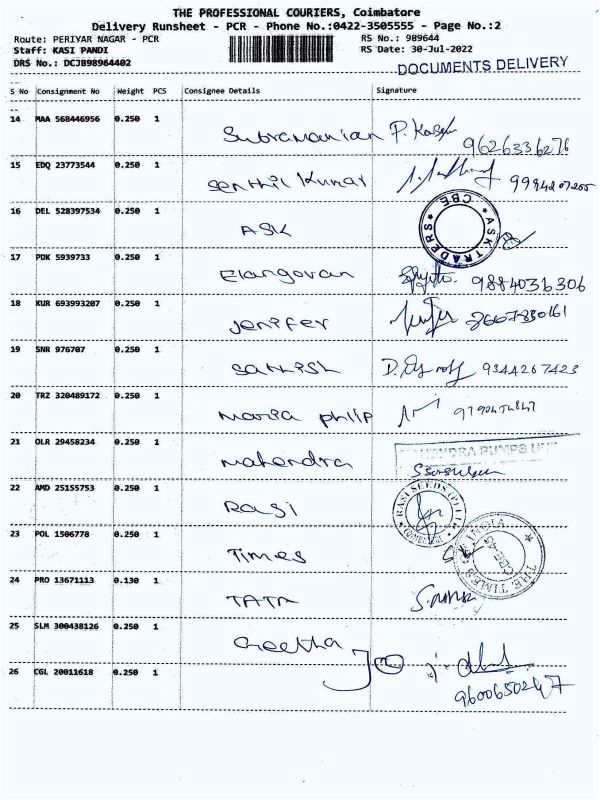 THE PROFESSIONAL COURIERS, Coimbatore
Delivery Runsheet - PCR - Phone No.:0422-3505555 - Page No.:2
Route: PERIYAR NAGAR - PCR RS No.: 989644
Staff: KASI PANDI RS Date: 30-Jul-2022
DRS No.: DCJB98964402 DOCUMENTS DELIVERY
S No Consignment No Weight PCS Consignee Details Signature
14 MAA 568446956 0.250 1 Subramanian 9626336276
15 EDQ 23773544 0.250 1 Senthil Kumar 9994207255
16 DEL 528397534 0.250 1 ASK ASK TRADERS CBE
17 PDK 5939733 0.250 1 Elangovan 9884036306
18 KUR 693993207 0.250 1 Jenifer
19 SNR 976707 0.250 1 Sathish 9344267423
20 TRZ 320489172 0.250 1 Maria Philip
21 OLR 29458234 0.250 1 Mahendra PUMPS
22 AMD 25155753 0.250 1 Rasi RASI SEEDS (P) LTD
23 POL 1506778 0.250 1 Times THE TIMES OF INDIA
24 PRO 13671113 0.130 1 TATA
25 SLM 300438126 0.250 1 Geetha
26 CGL 20011618 0.250 1 9600650247